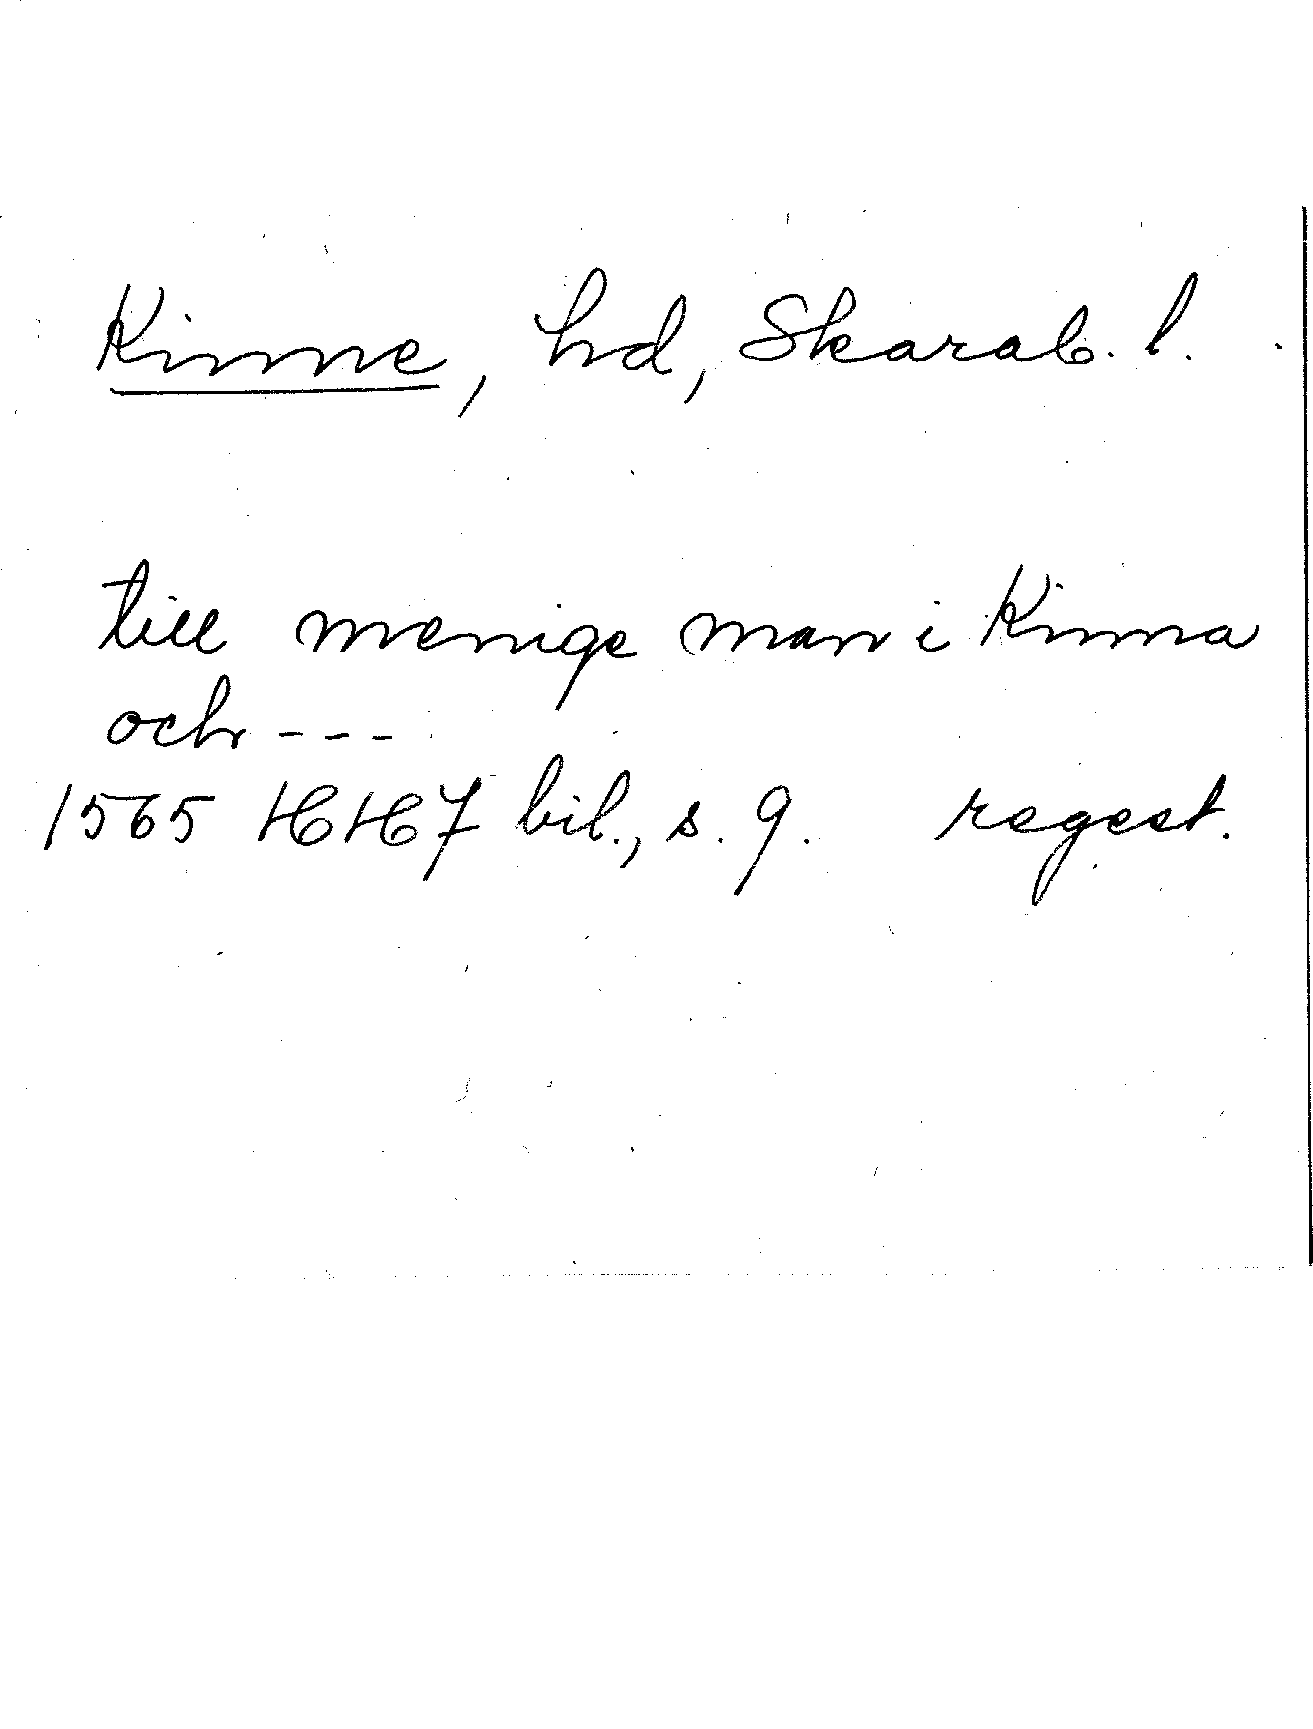 Kinne, hd, Skarab. l.
till menige man i Kinna
och ---
1565 HH 7 bil., s. 9. regest.